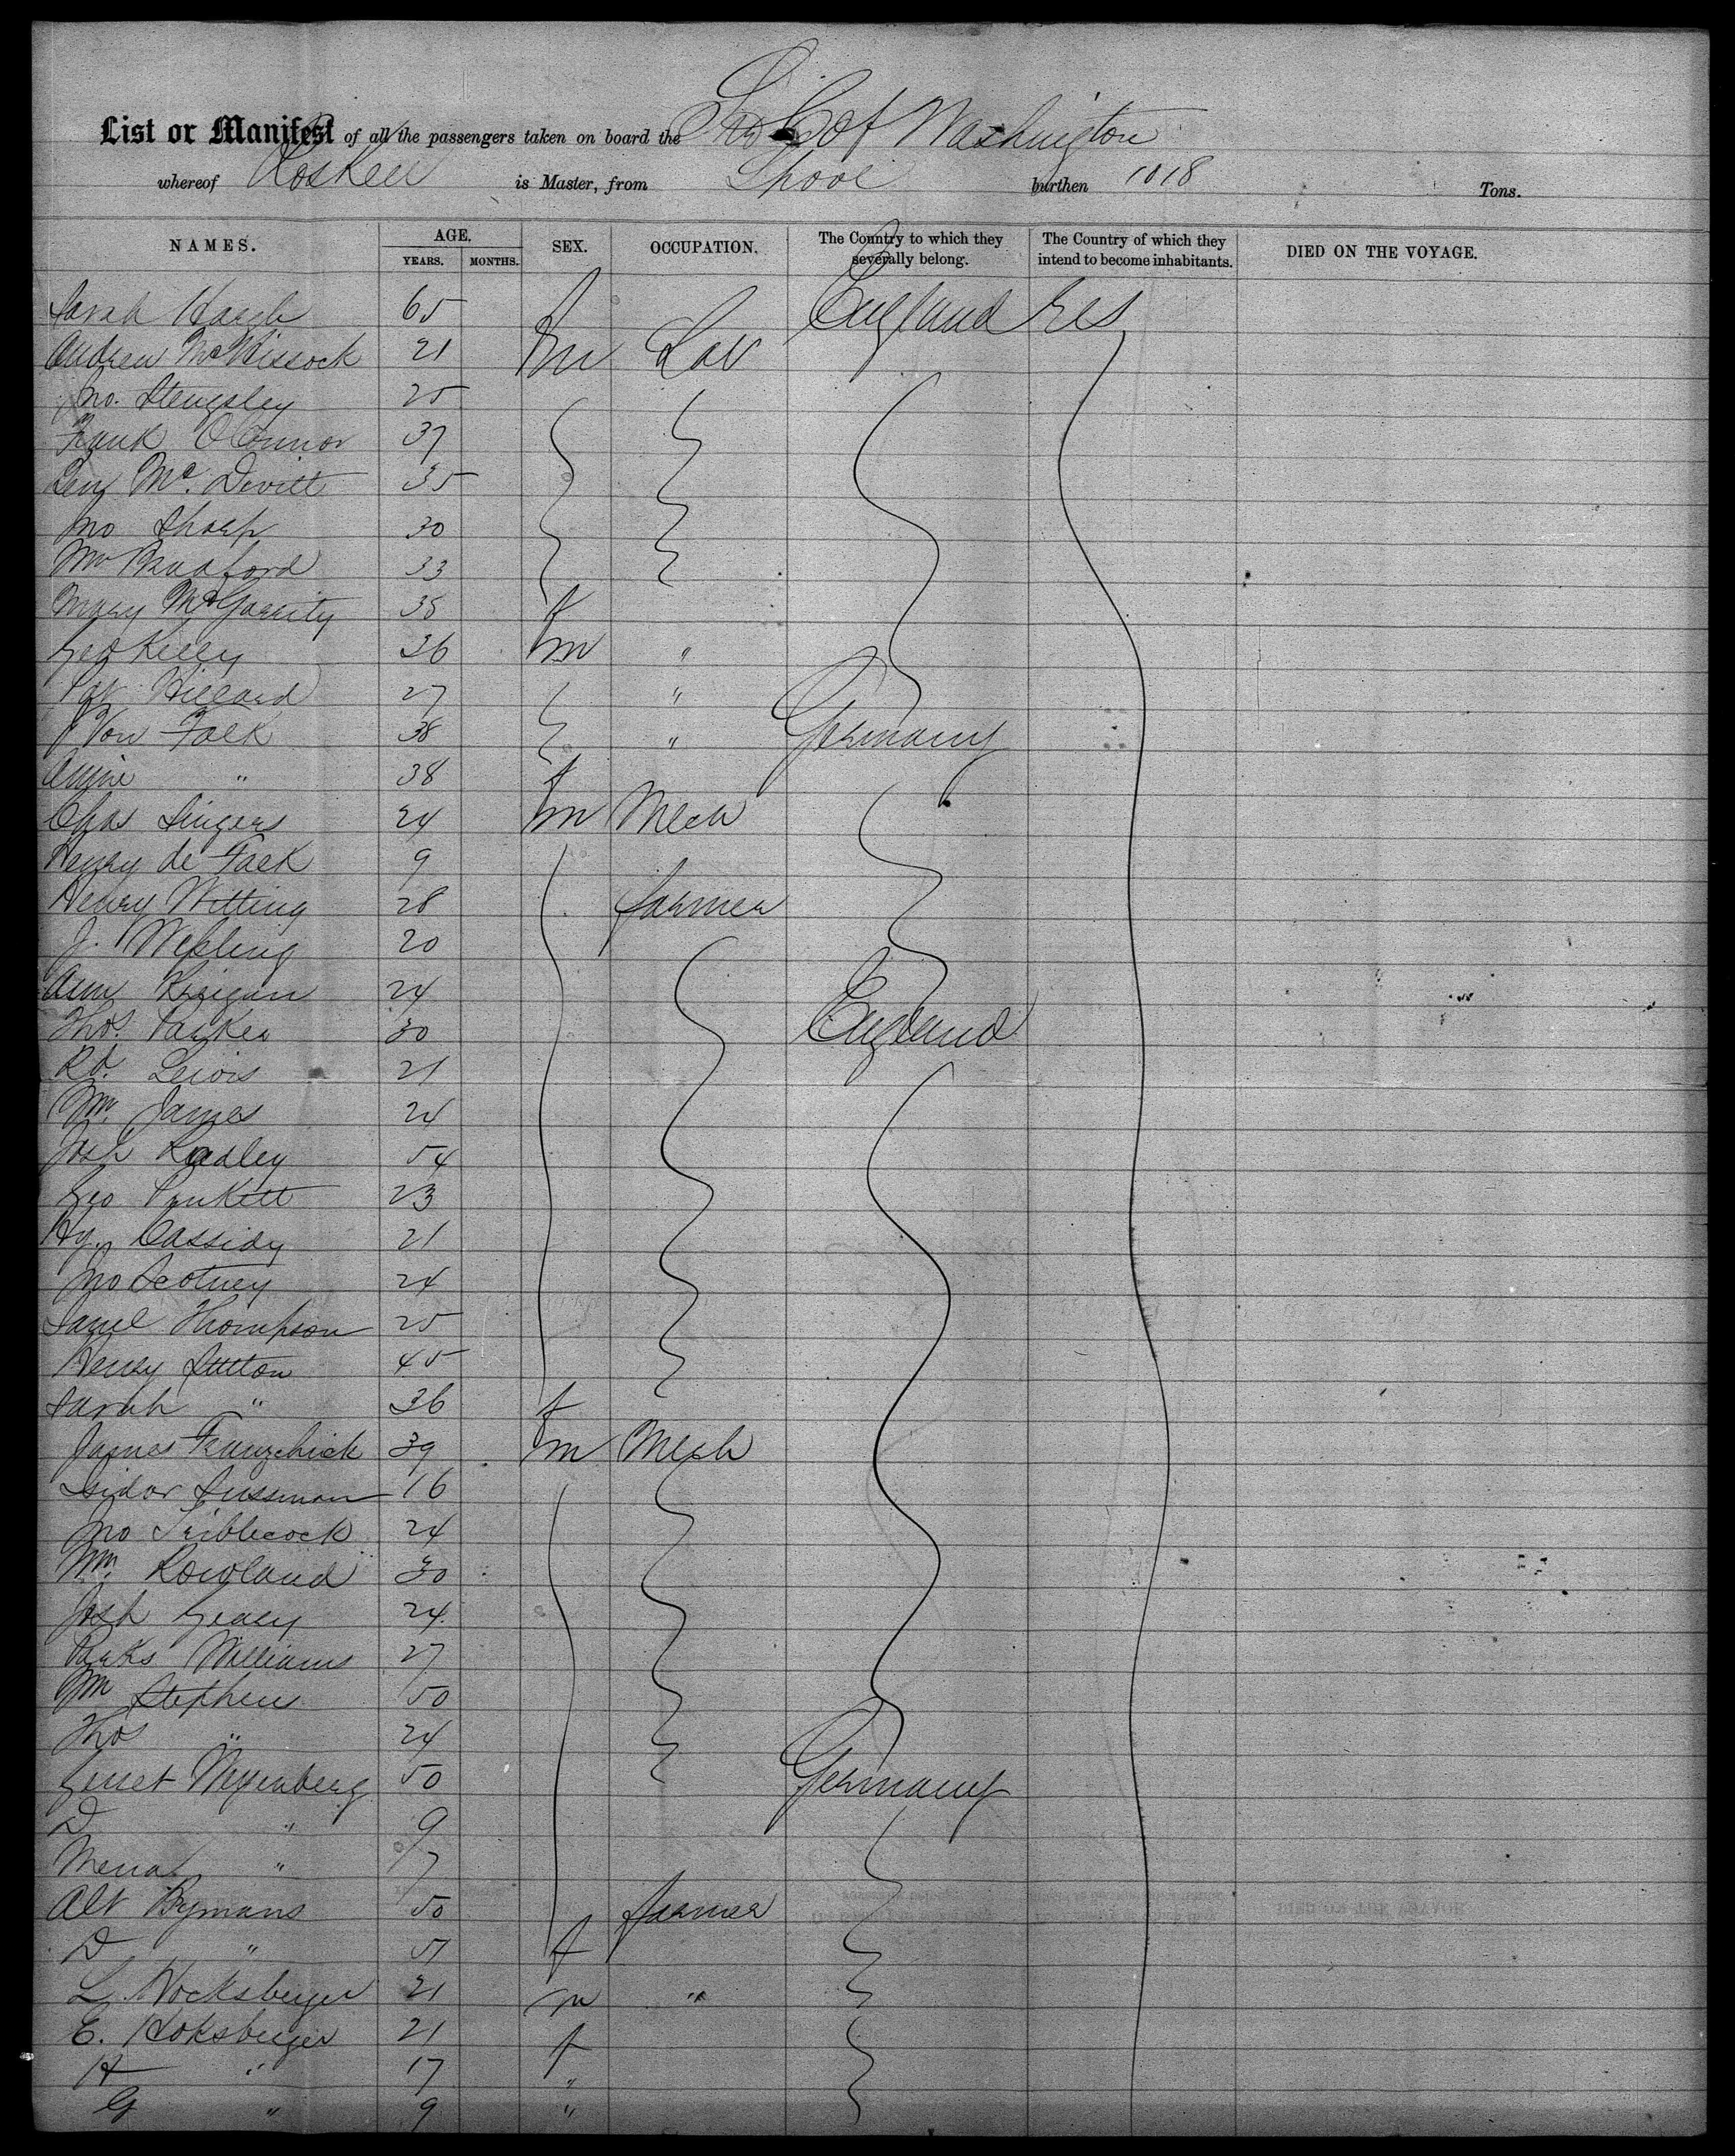 List or Manifest of all the passengers taken on board the C of Washington
whereof Roskell is Master, from Lpool burthen 1018 Tons.
NAMES. AGE. YEARS. MONTHS. SEX. OCCUPATION. The Country to which they severally belong. The Country of which they intend to become inhabitants. DIED ON THE VOYAGE.
Sarah 65 f England
Andrew McKissock 21 m Lab
Jno. 25
Frank O'Connor 37
McDevitt 35
Jno Sharp 30
Wm Bradford 33
Mary McGarrity 35 f
Geo Kelly 36 m "
Pat Hillard 27 "
J Von Falk 38 " Germany
" 38 f
Chas Singers 24 m Mech
Henry de Falk 9
Henry Witting 28 farmer
J. 20
Ann 24
Thos. Parker 30 England
Rd. Lewis 21
Wm. James 24
Josh Radley 54
Geo 23
Hy. Cassidy 21
Jno Scotney 24
Saml Thompson 25
Henry Sutton 45
Sarah " 36 f
James 39 m Mech
Isidor Sussman 16
Jno Tribblecock 24
Wm. Rowland 30
Josh 24
Williams 27
Wm Stephens 50
Thos " 24
50 Germany
D " 9
" 7
Alt Bymans 50 farmer
D " 57 f
L. Hocksberger 21 m "
E. Hoksberger 21 f
H " 17 "
G " 9 "